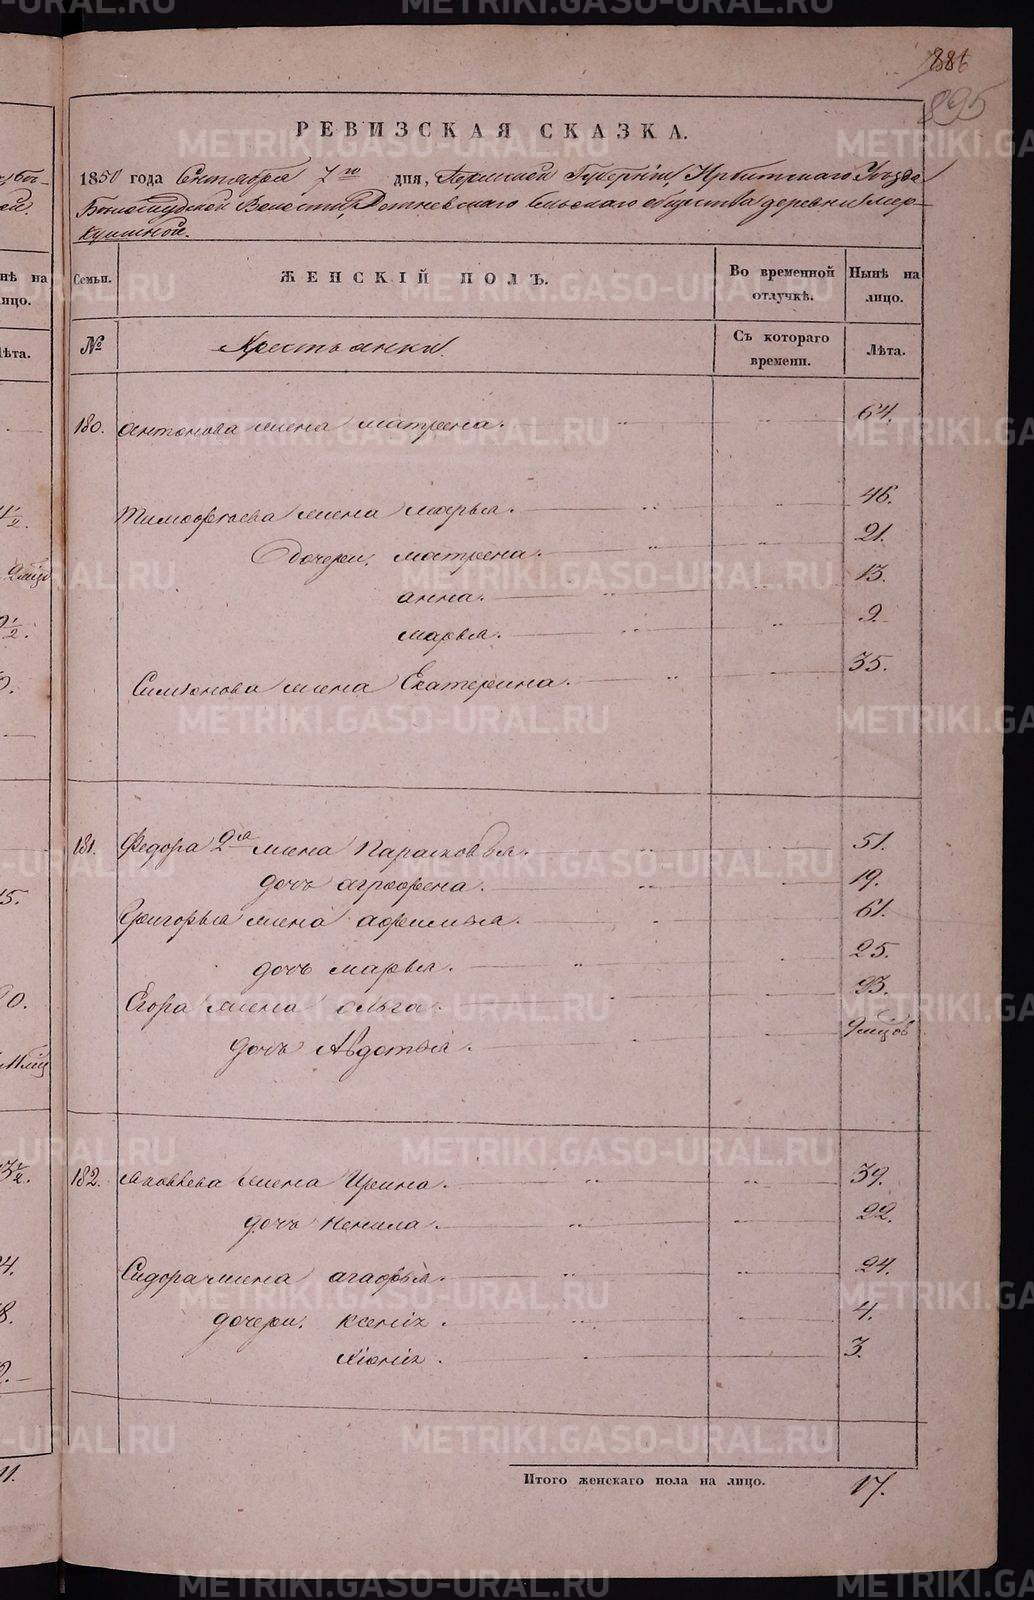 886
895
РЕВИЗСКАЯ СКАЗКА.
1850 года Сентября 7го дня, Пермской Губерніи, Ирбитскаго Уѣзда
Бѣлослудской Волости, сельскаго общества деревни Мер-
кушиной.
Семьи. ЖЕНСКІЙ ПОЛЪ. Во временной отлучкѣ. Нынѣ на лицо.
№ Крестьянки. Съ котораго времени. Лѣта.
180. Антонова жена Матрена. 64.
Тимофеева жена Марья. 46.
Дочери, Матрена. 21.
Анна. 13.
Марья. 9.
Симіонова жена Екатерина. 35.
181. Федора 2го жена Парасковья. 51.
дочь Аграфена. 19.
Григорья жена Афимья. 61.
дочь Марья. 25.
Егора жена Ольга. 23.
дочь Авдотья. 9 мѣцов
182. Яковлева жена Ирина. 39.
дочь Ненила. 22.
Сидора жена Агафья. 24.
дочери, Ксенія. 4.
Хіонія. 3.
Итого женскаго пола на лицо. 17.
METRIKI.GASO-URAL.RU